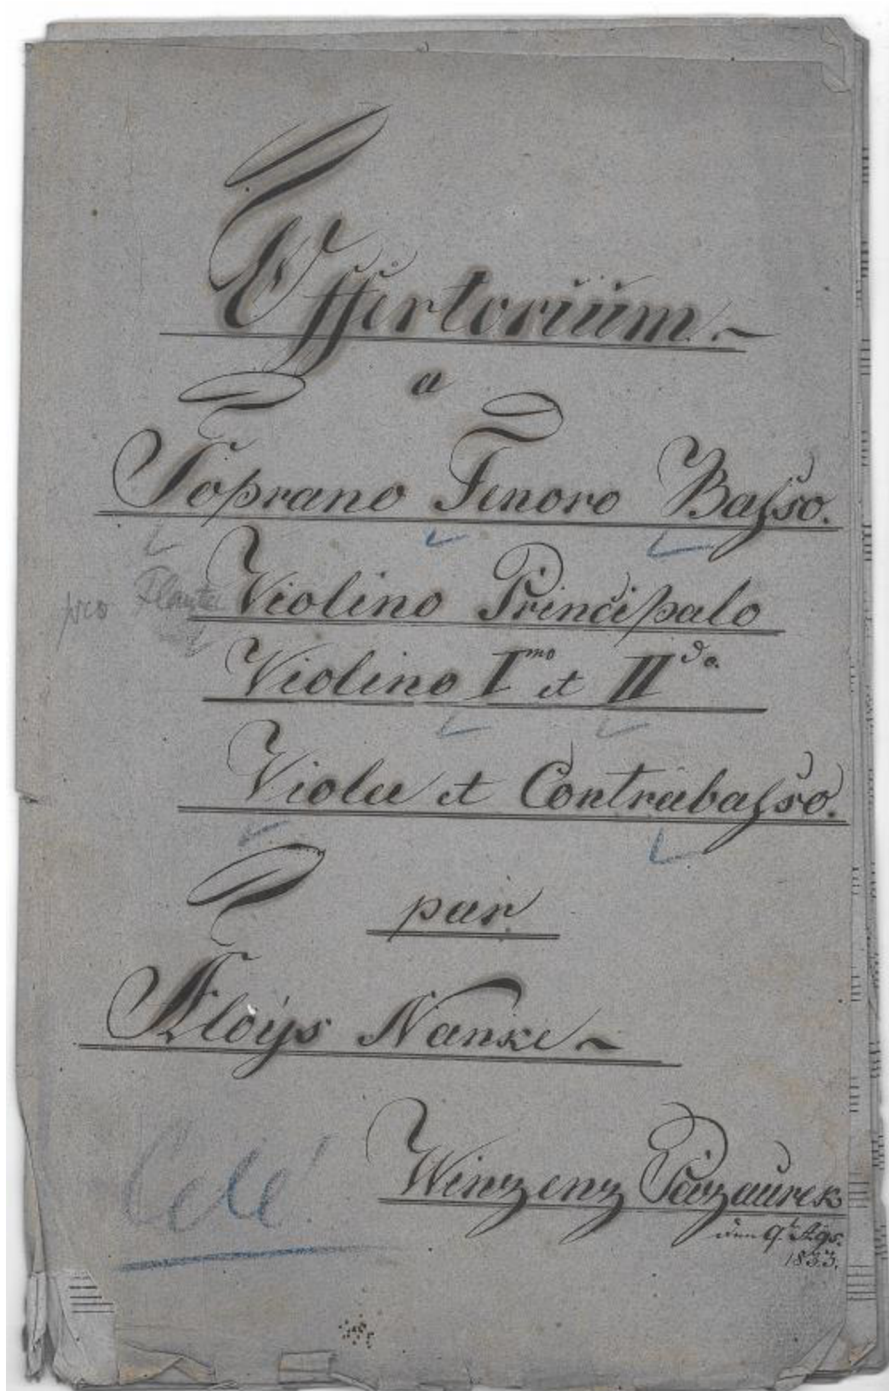 Offertoriüm.
a
Soprano Tenoro Basso.
pro Flauto Violino Principalo
Violino I^mo et II^do.
Viola et Contrabasso.
par
Aloÿs Nanke
Celé
Winzenz
den 9^t Ags.
1833.